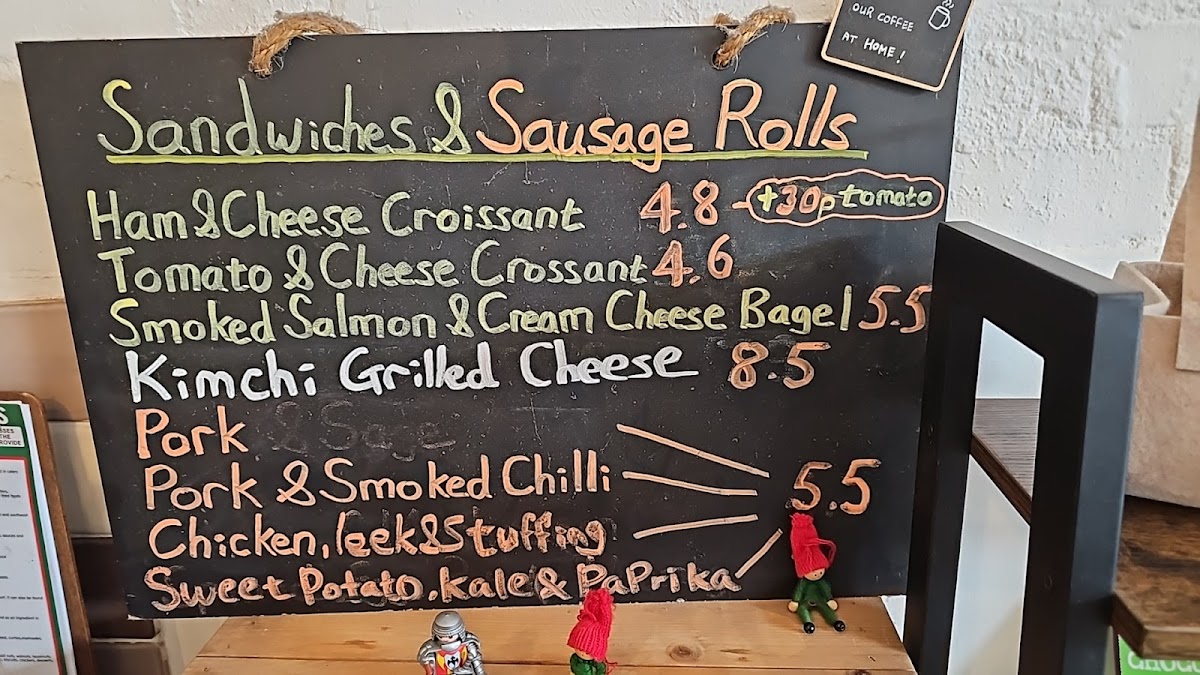 OUR COFFEE
AT HOME!
Sandwiches & Sausage Rolls
Ham & Cheese Croissant 4.8 - +30p tomato
Tomato & Cheese Crossant 4.6
Smoked Salmon & Cream Cheese Bagel 5.5
Kimchi Grilled Cheese 8.5
Pork & Sage
Pork & Smoked Chilli
5.5
Chicken, leek & Stuffing
Sweet Potato, Kale & Paprika